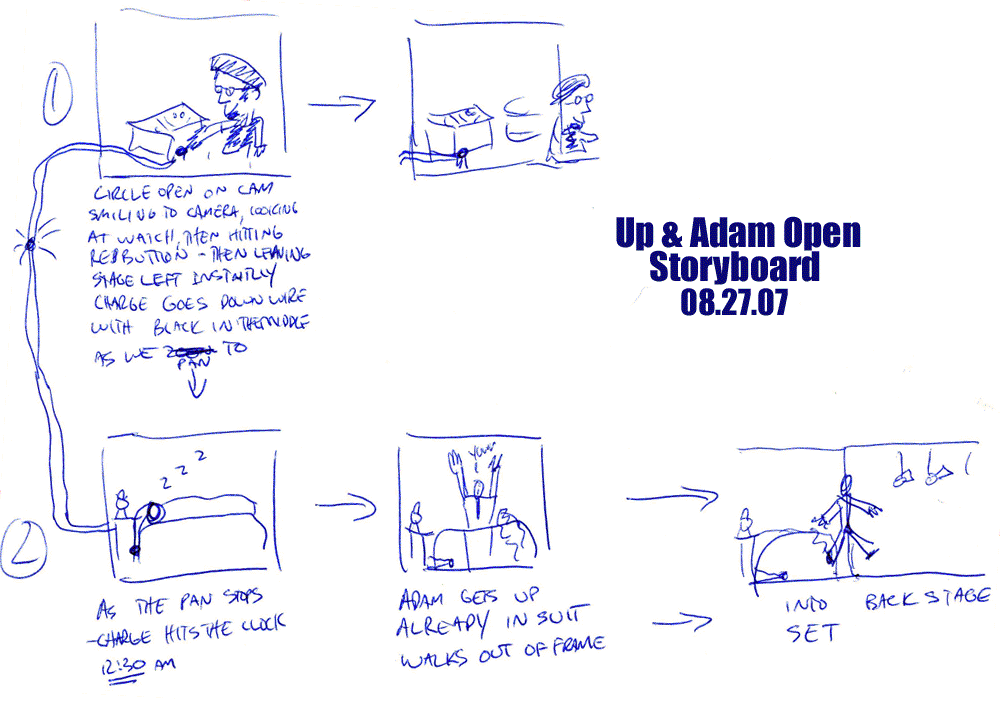 1
CIRCLE OPEN ON CAM
SMILING TO CAMERA, LOOKING
AT WATCH, THEN HITTING
RED BUTTON - THEN LEAVING
STAGE LEFT INSTANTLY
CHARGE GOES DOWN WIRE
WITH BLACK IN THE MIDDLE
AS WE TO
PAN
Up & Adam Open
Storyboard
08.27.07
2
Z Z Z
AS THE PAN STOPS
-CHARGE HITS THE CLOCK
12:30 AM
YAWN
ADAM GETS UP
ALREADY IN SUIT
WALKS OUT OF FRAME
INTO
SET
BACK STAGE